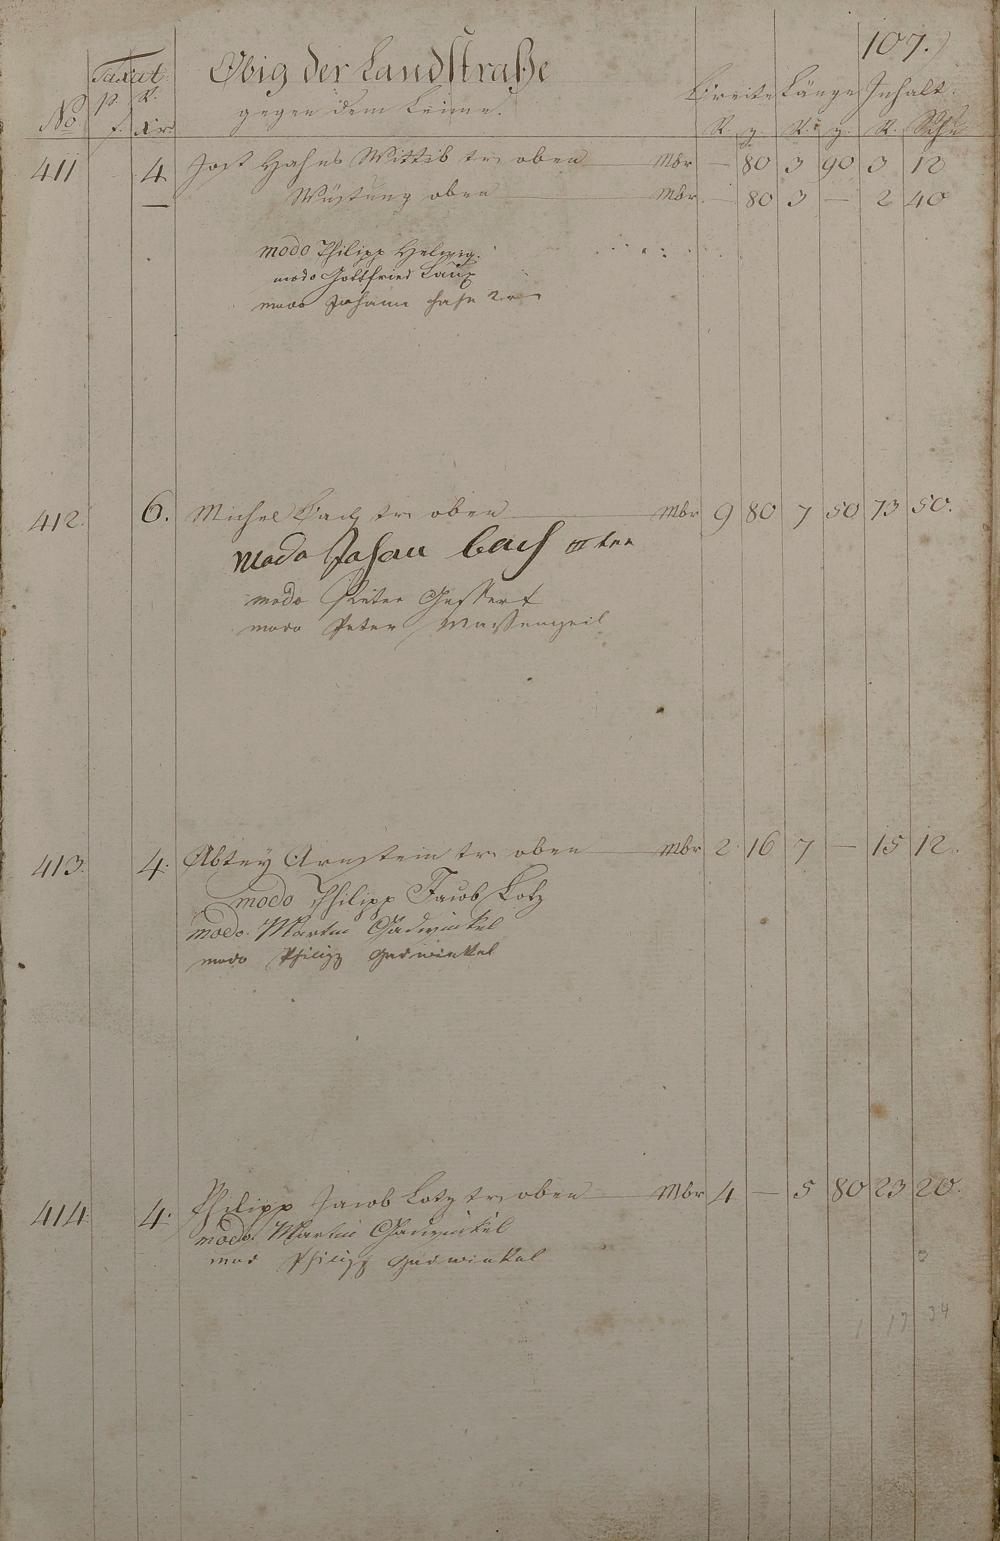 107.
Taxat
Obig der Landstraße
p. R.
gegen dem Leime.
Breite Länge Inhalt.
No f. xr
R. z. R. z. R. Schu
411 4 Jost Hahns Wittib tr. oben Mbr — 80 3 90 3 12
— Wüstung oben Mbr — 80 3 — 2 40
modo Philipp Helwig.
modo Gottfried Laux
modo Johann Hahn 2r
412. 6. Michel Bach tr. oben Mbr 9 80 7 50 73 50.
modo Johan bach
modo Peter Gessert
modo Peter
413. 4. Abtey Arnstein tr. oben Mbr 2 16 7 — 15 12.
modo Philipp Jacob Lotz
modo Martin Gadwinkel
modo Philipp Gadwinkel
414. 4. Philipp Jacob Lotz tr. oben Mbr 4 — 5 80 23 20.
modo Martin Gadwinkel
mod Philipp Gadwinkel
1 17 34